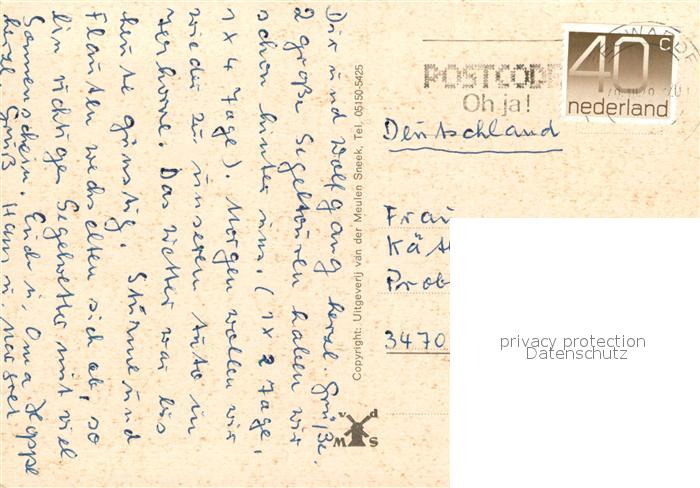 Dir und Wolfgang herzl. Grüße.
2 große Segeltouren haben wir
schon hinter uns. (1x 2 Tage,
1x 4 Tage). Morgen wollen wir
wieder zu unserem Auto in
Terhorne. Das Wetter war bis
heute günstig. Stürme und
Flauten wechselten sich ab, so
ein richtiges Segelwetter mit viel
Sonnenschein. Euch u. Oma Hoppe
herzl. Gruß Hans u. Margret
Copyright: Uitgeverij van der Meulen Sneek, Tel. 05150-5425
v d
M S
POSTCODE
Oh ja!
40 c
nederland
Deutschland
Frau
3470
privacy protection
Datenschutz